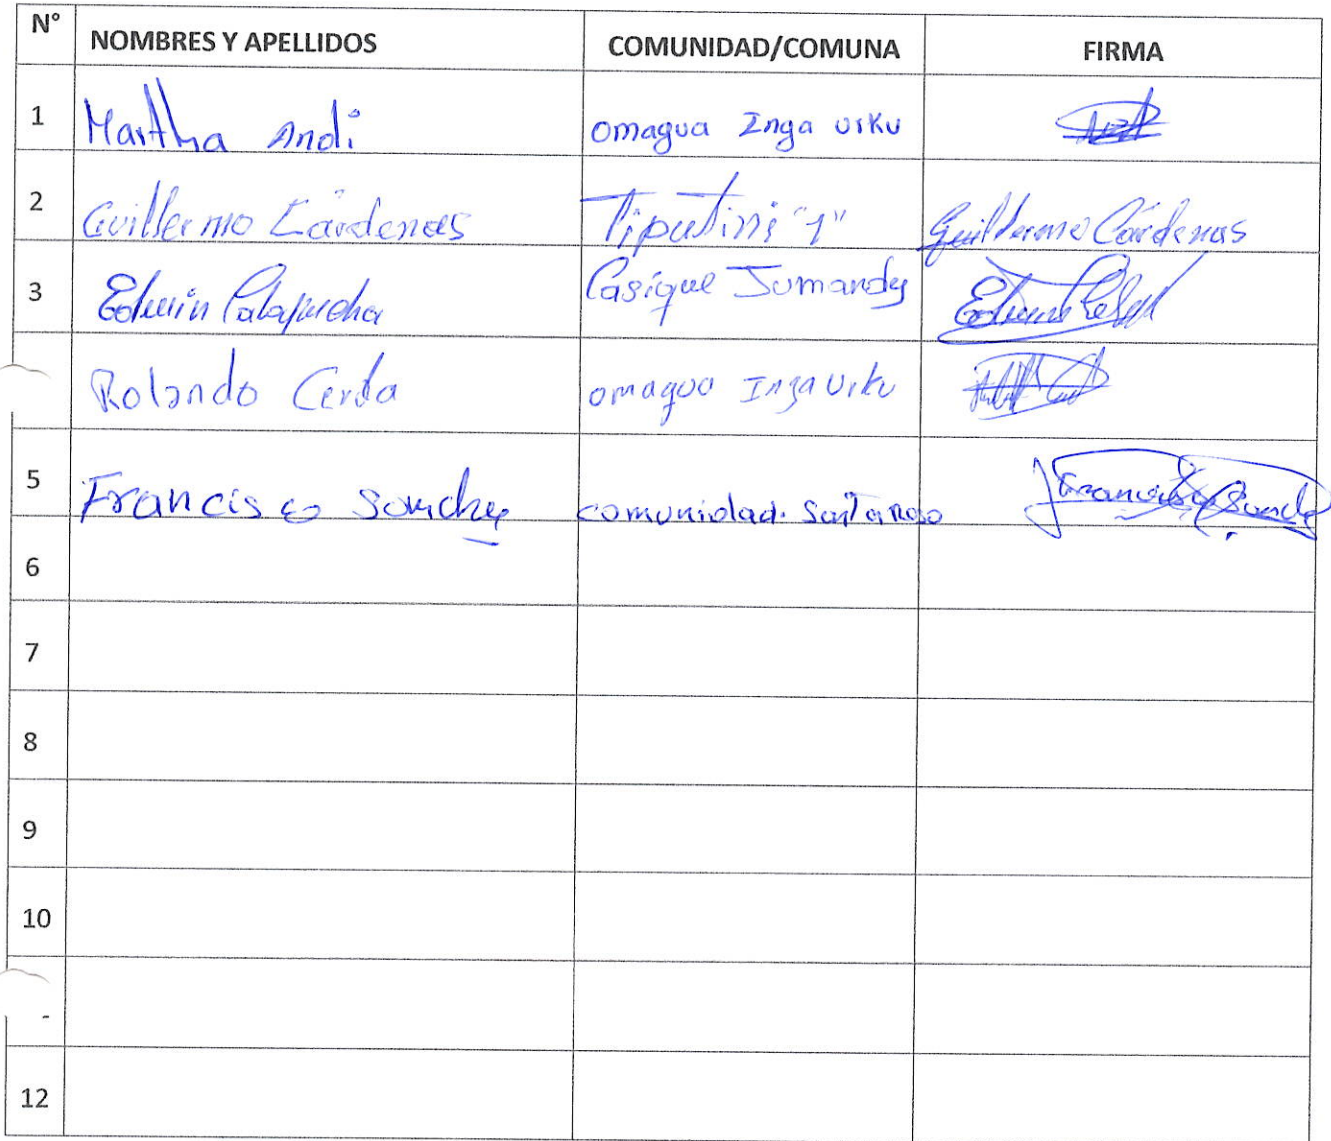 N° NOMBRES Y APELLIDOS COMUNIDAD/COMUNA FIRMA
1 Martha Andi omagua Inga urku
2 Guillermo Cárdenas Tiputini "1" Guillermo Cárdenas
3 Edwin Calapucha Casique Jumandy
Rolando Cerda omagua Inga Urku
5 Francisco comunidad. Santa Rosa
6
7
8
9
10
12